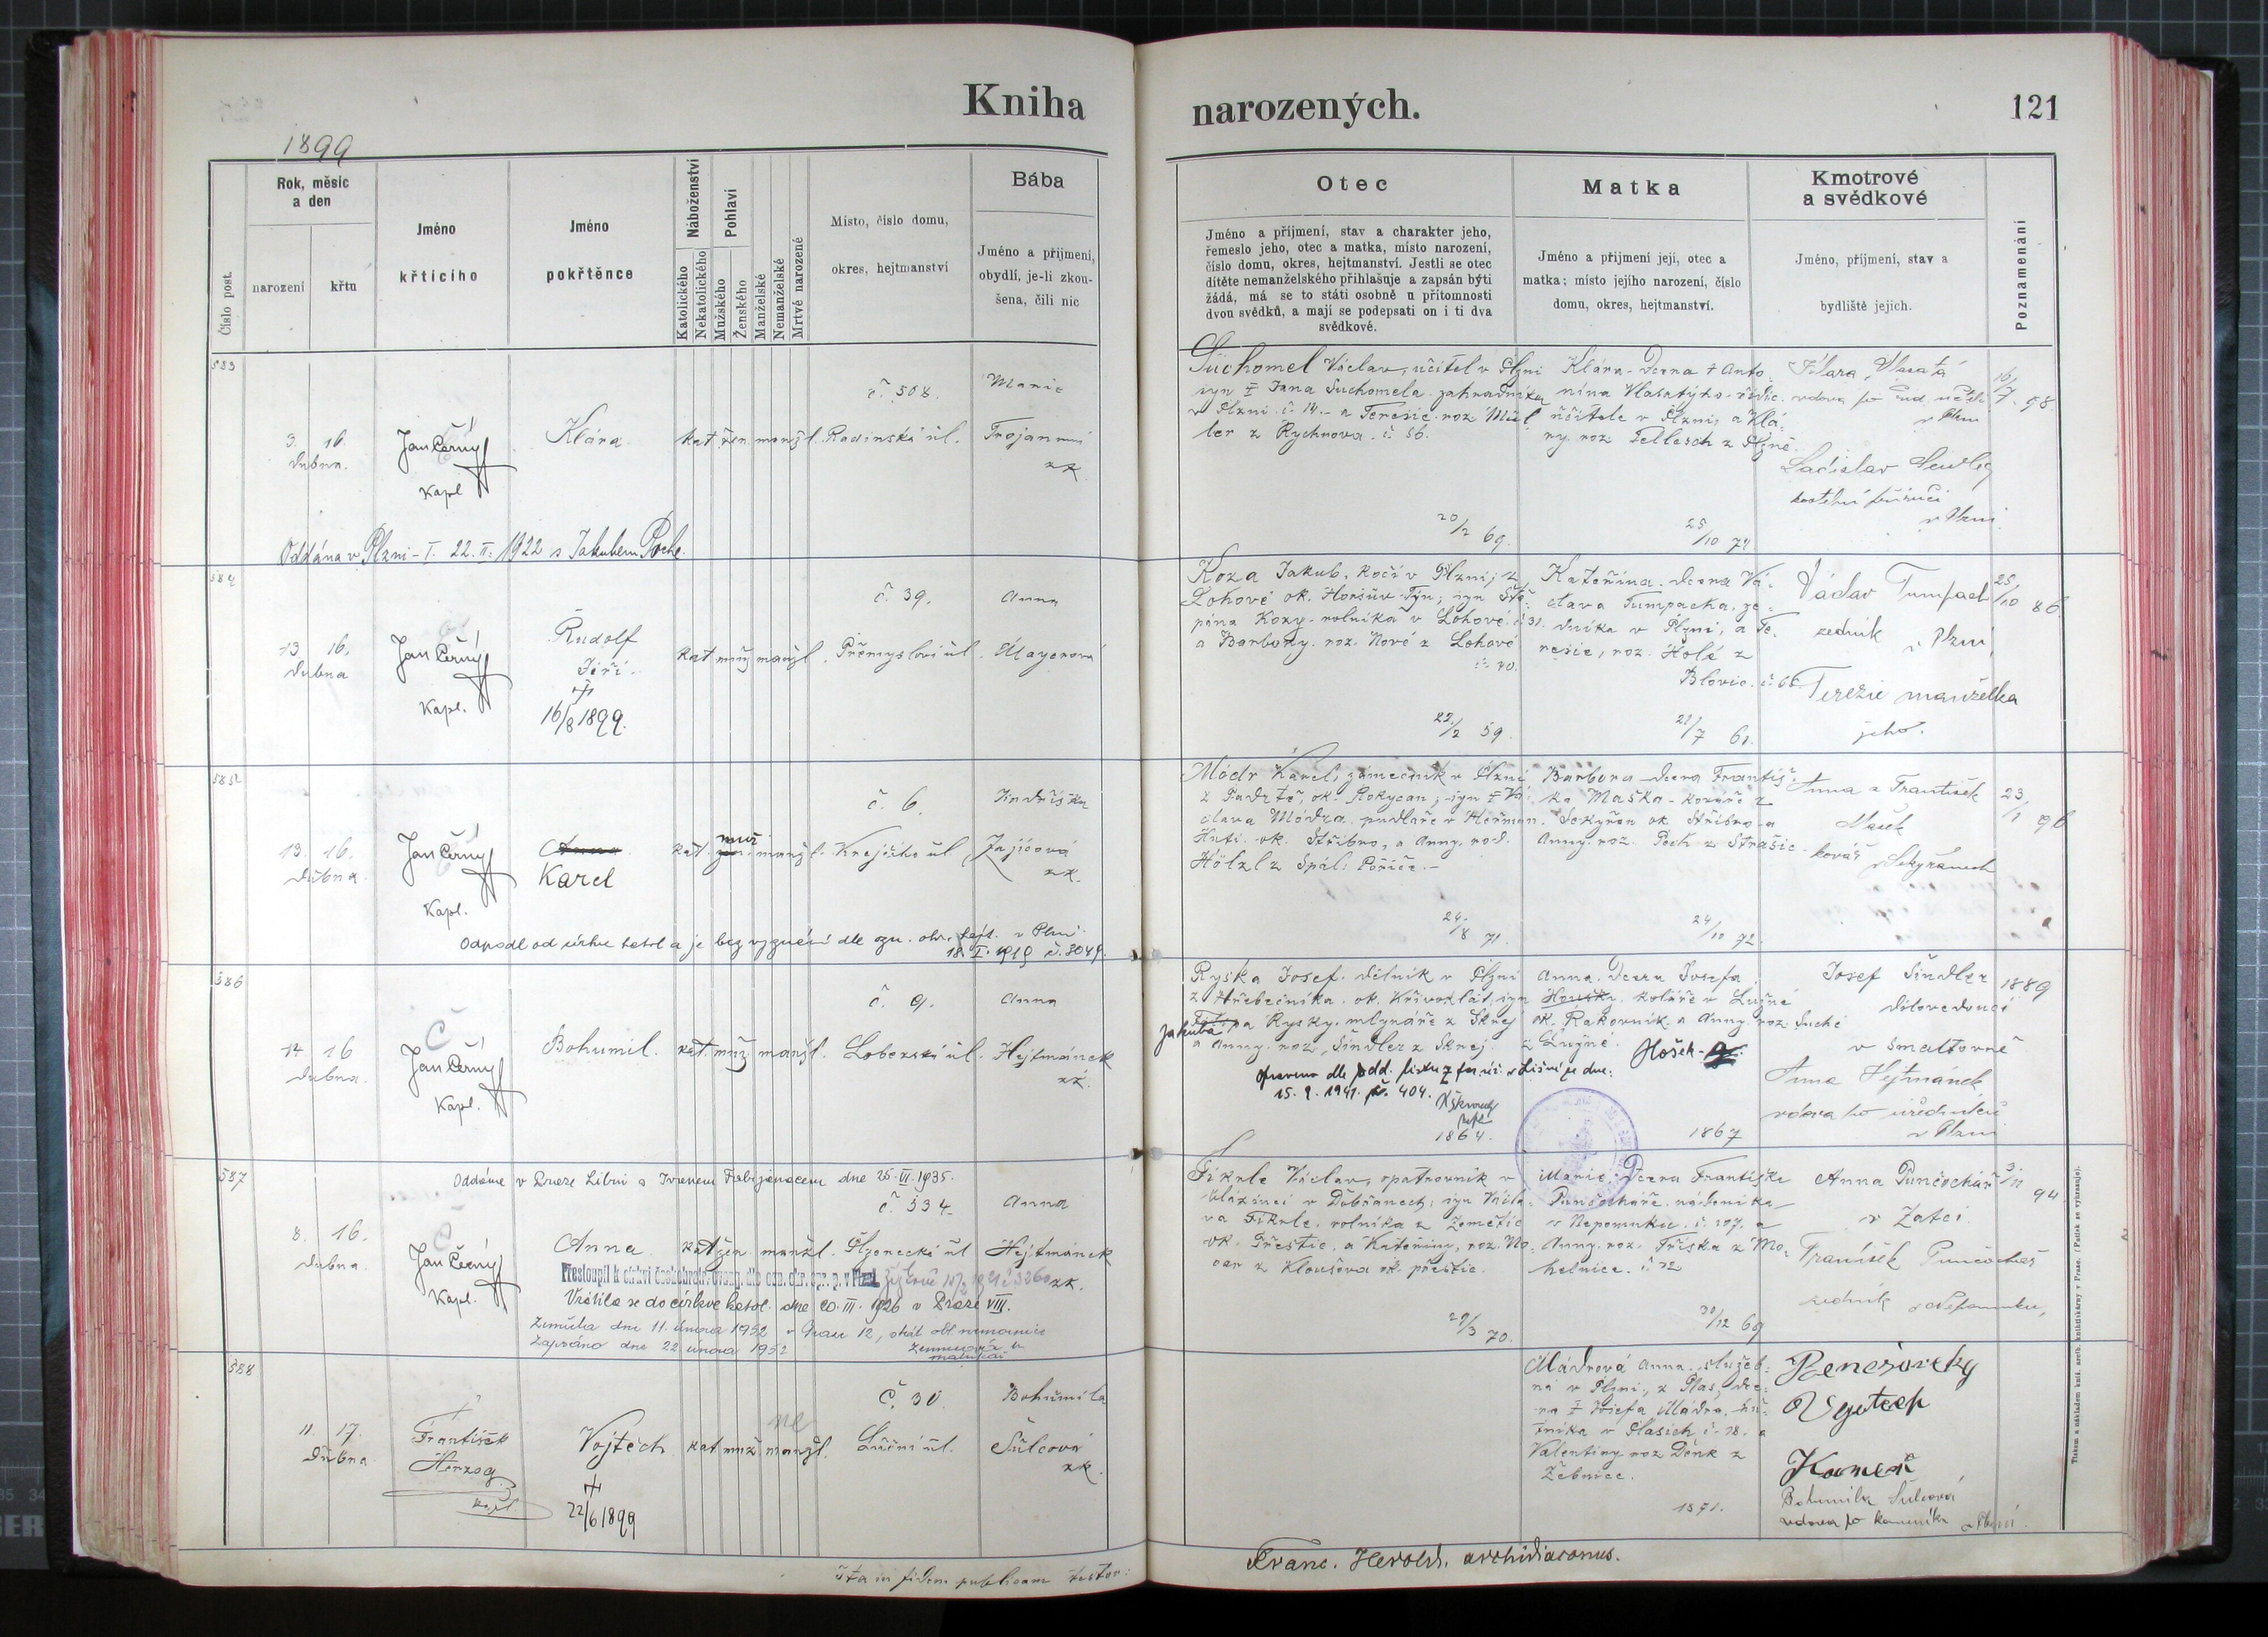 Kniha narozených.
121
1899
Číslo post.
Rok, měsíc
a den
narození
křtu
Jméno
křtícího
Jméno
pokřtěnce
Náboženství
Katolického
Nekatolického
Pohlaví
Mužského
Ženského
Manželské
Nemanželské
Mrtvě narozené
Místo, číslo domu,
okres, hejtmanství
Bába
Jméno a příjmení,
obydlí, je-li zkou-
šena, čili nic
Otec
Jméno a příjmení, stav a charakter jeho,
řemeslo jeho, otec a matka, místo narození,
číslo domu, okres, hejtmanství. Jestli se otec
dítěte nemanželského přihlašuje a zapsán býti
žádá, má se to státi osobně u přítomnosti
dvou svědků, a mají se podepsati on i ti dva
svědkové.
Matka
Jméno a příjmení její, otec a
matka; místo jejího narození, číslo
domu, okres, hejtmanství.
Kmotrové
a svědkové
Jméno, příjmení, stav a
bydliště jejich.
Poznamenání
583
3. 16.
dubna.
Jan Černý
Kapl
Klára
kat žen manžl.
č. 508.
Radinská ul.
Marie
Trojanová
zk
Oddána v Plzni-I. 22.II.1922 s Jakubem Poche.
Suchomel Václav, učitel v Plzni
syn † Jana Suchomela zahradníka
v Plzni č. 14. a Terezie roz. Mül
ler z Rychnova č. 56.
20/2 69.
Klára dcera † Anto-
nína Vlasatýho řídíc.
učitele v Plzni, a Klá-
ry roz. Pellesch z Plzně.
25/10 74
Klára Vlasatá
vdova po učit.
v Plzni
Ladislav
v Plzni
16/7 98
584
13. 16.
dubna
Jan Černý
Kapl.
Rudolf
Jiří.
†
16/8 1899.
kat muž manžl.
č. 39.
Přemyslova ul.
Anna
Mayerová
Koza Jakub, kočí v Plzni, z
Lohové ok. Horšův Týn, syn Ště-
pána Kozy, rolníka v Lohové č. 31.
a Barbory, roz. Nové z Lohové
č. 40.
22/2 59.
Kateřina dcera Vá-
clava Tumpacha, ze-
dníka v Plzni, a Te-
rezie, roz. Holé z
Blovic č. 66.
21/7 61.
Václav Tumpach
zedník v Plzni,
Terezie manželka
jeho.
25/10 86
585
13. 16.
dubna
Jan Černý
Kapl.
Anna
Karel
kat. muž manžl.
č. 6.
Krejčího ul
Jindřiška
Zajícová
zk.
Odpadl od církve katol a je bez vyznání dle ozn. okr. hejt. v Plzni
18.I.1919 č. 3049.
Módr Karel, zámečník v Plzni
z Padrtě, ok. Rokycan, syn † Vá-
clava Módra pudlaře v Heřman.
Huti ok. Stříbro, a Anny, rod.
Hölzl z Spál. Poříče.
24/8 71.
Barbora dcera Františ-
ka Maška kováře z
Sekyřan ok Stříbro a
Anny roz. Pech z Strašic.
24/10 72.
Anna a František
Mašek
kovář v Sekyřanech
23/1 96
586
14 16
dubna.
Jan Černý
Kapl.
Bohumil.
kat. muž manžl.
č. 9.
Lobezská ul.
Anna
Hejtmánek
zk.
Ryska Josef dělník v Plzni
z Hřebečníka ok. Křivoklát, syn
Jakuba Rysky, mlynáře z Skrej
a Anny roz. Šindler z Skrej.
15.9.1941. č. 404.
1864.
Anna dcera Josefa
Houšky koláře v Lužné
ok. Rakovník a Anny roz. Suché
z Lužné. Hošek
1867
Josef Šindler
dílovedoucí
v smaltovně
Anna Hejtmánek
vdova po úředníku
v Plzni
1889
587
8. 16.
dubna.
Jan Černý
Kapl.
Oddána v Praze Libni s dne 25.VI.1935.
Anna
kat žen. manžl.
č. 534
Plzenecká ul
Anna
Hejtmánek
zk.
Přestoupil k církvi českobratr. evang. dle ozn. okr. spr. p. v Plzni
Vrátila se do církve katol. dne 20.III.1926 v Praze VIII.
Zemřela dne 11. února 1952 v Praze 12,
Zapsáno dne 22 února 1952
Fikrle Václav, opatrovník v
blázinci v Dobřanech, syn Václa-
va Fikrle, rolníka z Zemětic
ok. Přeštic, a Kateřiny, roz. No-
z Kloušova ok. přeštic.
29/3 70.
Marie dcera Františka
Punčocháře nádeníka
v Nepomuku č. 107. a
Anny roz. Tříska z Mo-
helnice. č. 72
30/12 69
Anna Punčochář
v Žatci.
František Punčochář
zedník v Nepomuku,
3/11 94
588
11. 17.
dubna
František
Herzog
kapl.
Vojtěch
†
22/6 1899
kat muž ne manžl.
č. 30
Luční ul.
Bohumila
Šulcová
zk.
Mádrová Anna služeb-
ná v Plzni, z Plas, dce-
ra † Josefa Mádra, hu-
tníka v Plasích č. 78. a
Valentiny roz Denk z
Žebnice.
1871.
Benešovský
Vojtěch
Bohumila Šulcová
vdova po kameníku v Plzni.
Ita in fidem publicam testor:
Franc. Herold, archidiaconus.